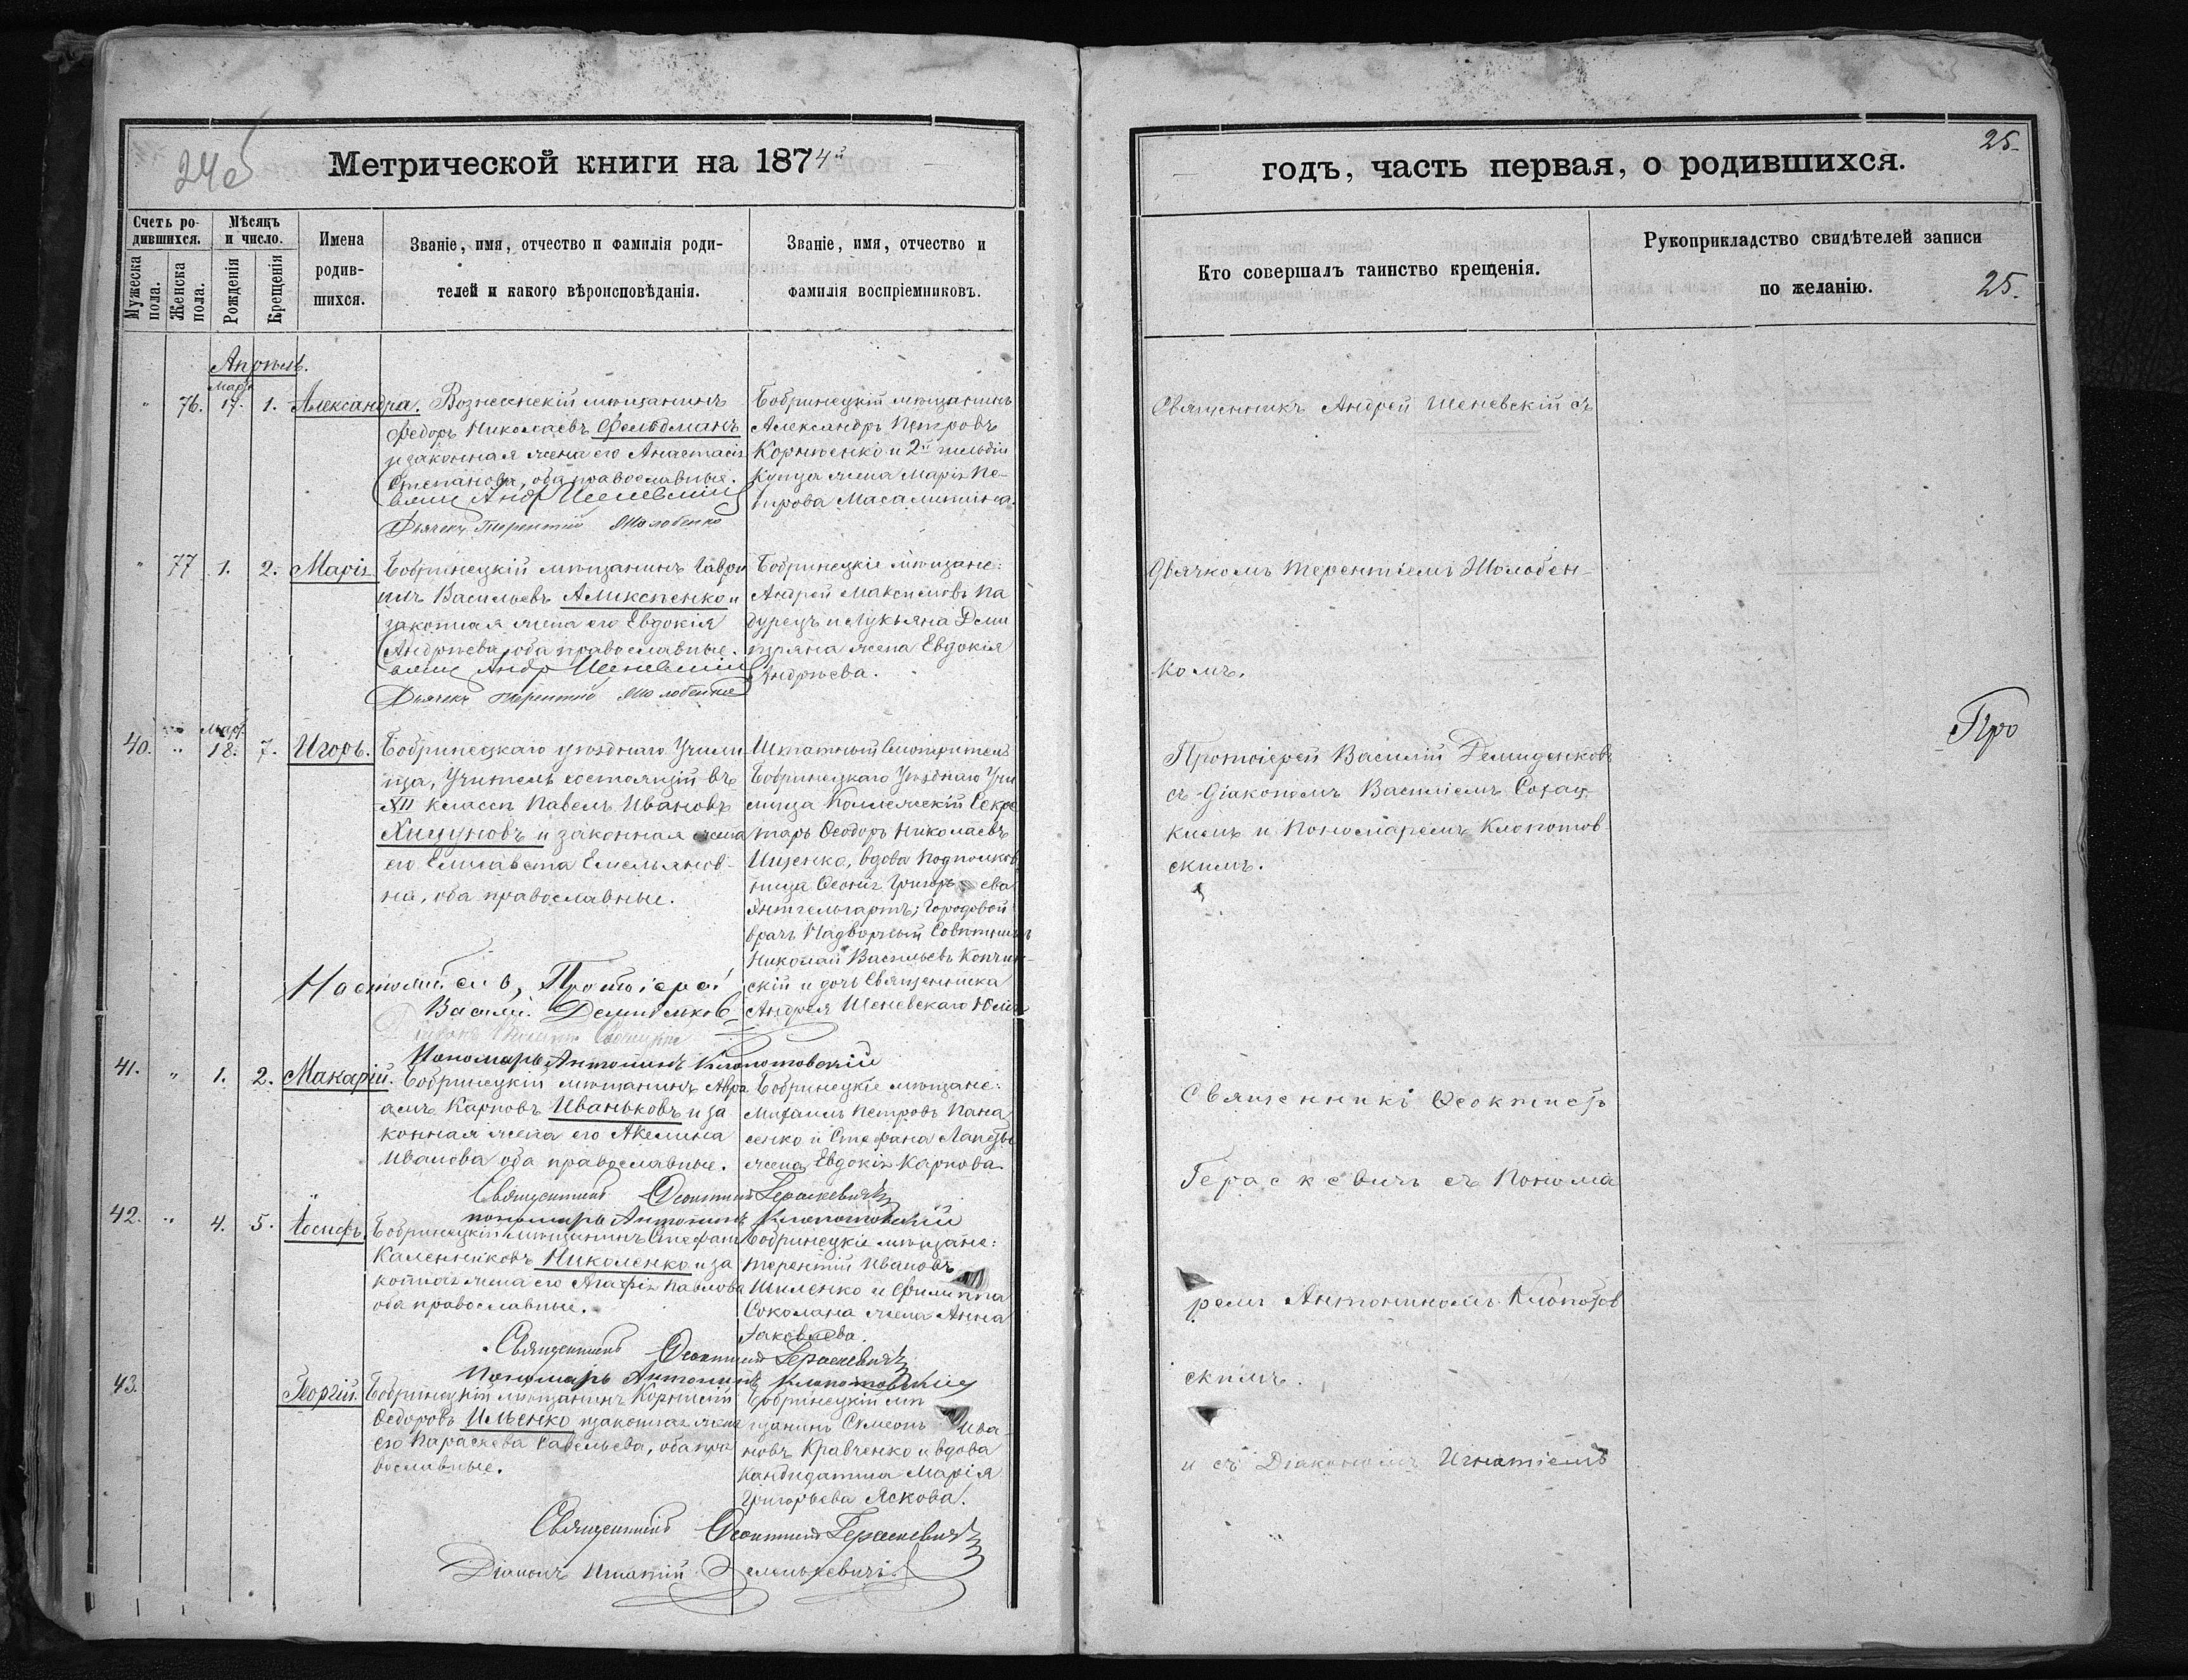 24 об
Метрической книги на 1874й
Счетъ родившихся.
Мужеска пола.
Женска пола.
Мѣсяцъ и число.
Рожденія
Крещенія
Имена родив-
шихся.
Званіе, имя, отчество и фамилія роди-
телей и какого вѣроисповѣданія.
Званіе, имя, отчество и
фамилія воспріемниковъ.
Апрѣль.
" 76. Март. 17. 1. Александра.
Вознесенскій мѣщанинъ
Федоръ Николаевъ Фельдманъ
и законная жена его Анастасія
Степанова, оба православные.
Андр Шеневскій
Дьячекъ Терентій Жолобенко
Бобринецкій мѣщанинъ
Александръ Петровъ
Корнѣенко и 2й гильдіи
Купца жена Марія Пе-
трова Масалитина.
" 77 1. 2. Марія
Бобринецкій мѣщанинъ Гаврі
илъ Васильевъ Аликсѣенко и
законная жена его Евдокія
Андрѣева, оба православные.
Андр Шеневскій
Дьячекъ Терентій Жолобенко
Бобринецкіе мѣщане:
Андрей Максимовъ Па
дурецъ и Лукьяна Деми
тряна жена Евдокія
Андрѣева.
40. " Март. 18. 7. Игорь.
Бобринецкаго уѣзднаго Учили
ща, Учитель состоящій въ
XII классѣ Павелъ Ивановъ
Хицуновъ и законная жена
его Елисавета Емельянов-
на, оба православные.
Настоятель, Протоіерей
Василій Демиденковъ
Пономарь Антонинъ Клопотовскій
Штатный Смотритель
Бобринецкаго Уѣзднаго Учи
лища Коллежскій Секре
тарь Ѳеодоръ Николаевъ
Ищенко, вдова Подполков
ница Ѳеонія Григорьева
Энгельгартъ; Городовой
врачъ Надворный Совѣтникъ
Николай Васильевъ Копчин-
скій и дочь Священника
Андрея Шеневскаго Юлія
41. " 1. 2. Макарій.
Бобринецкій мѣщанинъ Авра
амъ Карповъ Иваньковъ и за
конная жена его Акелина
Иванова оба православные.
Священникъ Ѳеоктистъ Гераскевичъ
пономарь Антонинъ Клопотовскій
Бобринецкіе мѣщане:
Михаилъ Петровъ Пана
сенко и Стефана Лапезы
жена Евдокія Карпова.
42. " 4. 5. Іосифъ.
Бобринецкій мѣщанинъ Стефанъ
Каленниковъ Николенко и за
конная жена его Агафія Павлова
оба православные.
Священникъ Ѳеоктистъ Гераскевичъ
Пономарь Антонинъ Клопотовскій
Бобринецкіе мѣщане:
Терентій Ивановъ
Шиленко и Филиппа
Соколана жена Анна
Яковлева.
43. Георгій.
Бобринецкій мѣщанинъ Корнилій
Ѳедоровъ Ильенко и законная жена
его Параскева Савельева, оба пра
вославные.
Бобринецкій мѣ
щанинъ Сѵмеонъ Ива-
новъ Кравченко и вдова
Кандидатша Марія
Григорьева Яскова.
Священникъ Ѳеоктистъ Гераскевичъ
Діаконъ Игнатій
годъ, часть первая, о родившихся.
25.
Кто совершалъ таинство крещенія.
Рукоприкладство свидѣтелей записи
по желанію.
25.
Священникъ Андрей Шеневскій съ
Дьячкомъ Терентіемъ Жолобен-
комъ.
Про
Протоіерей Василій Демиденковъ
съ Діакономъ Василіемъ Сохац
кимъ и Пономаремъ Клопотов
скимъ.
Священникъ Ѳеоктистъ
Гераскевичъ съ Понома
ремъ Антониномъ Клопотов
скимъ.
и съ Діакономъ Игнатіемъ